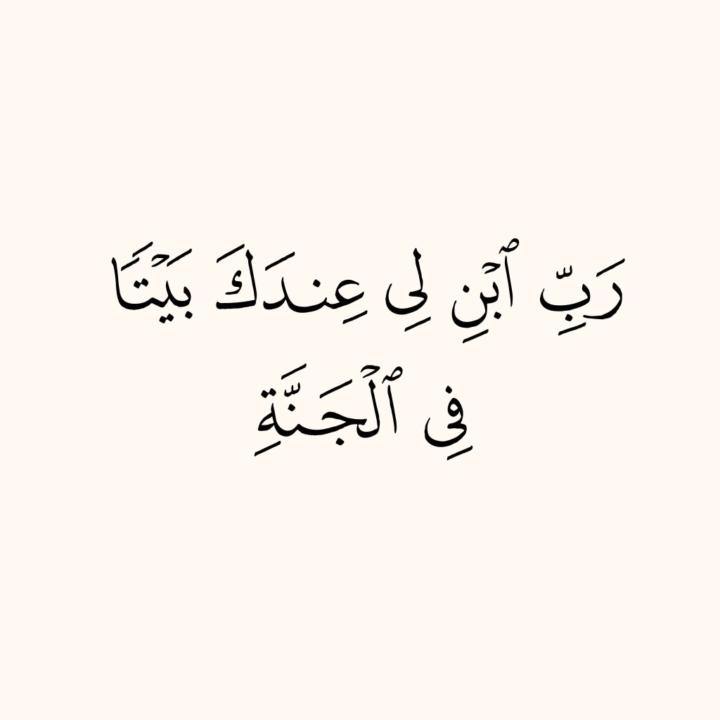 رَبِّ ٱبۡنِ لِى عِندَكَ بَيۡتٗا
فِى ٱلۡجَنَّةِ